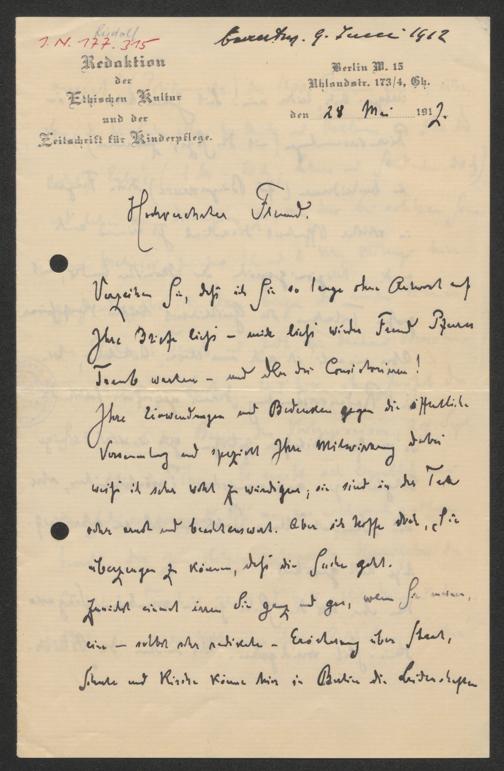 I. N. 177.315
Rudolf
beantw. 9. Juni 1912
Redaktion
der
Ethischen Kultur
und der
Zeitschrift für Kinderpflege.
Berlin W. 15
Uhlandstr. 173/4, Gh.
den 28 Mai 1912.
Hochverehrter Freund.
Verzeihen Sie, daß ich Sie so lange ohne Antwort auf
Ihre Briefe ließ – mich ließ wieder Freund Pfarrer
Traub warten – und das Consistorium!
Ihre Einwendungen und Bedenken gegen die öffentliche
Versammlung und speziell Ihre Mitwirkung dabei
weiß ich sehr wohl zu würdigen; sie sind in der Tat
sehr ernst und beachtenswert. Aber ich hoffe doch, Sie
überzeugen zu können, daß die Sache geht.
Zunächst einmal irren Sie ganz und gar, wenn Sie meinen,
eine – selbst sehr radikale – Erörterung über Staat,
Schule und Kirche könne hier in Berlin die Leidenschaften